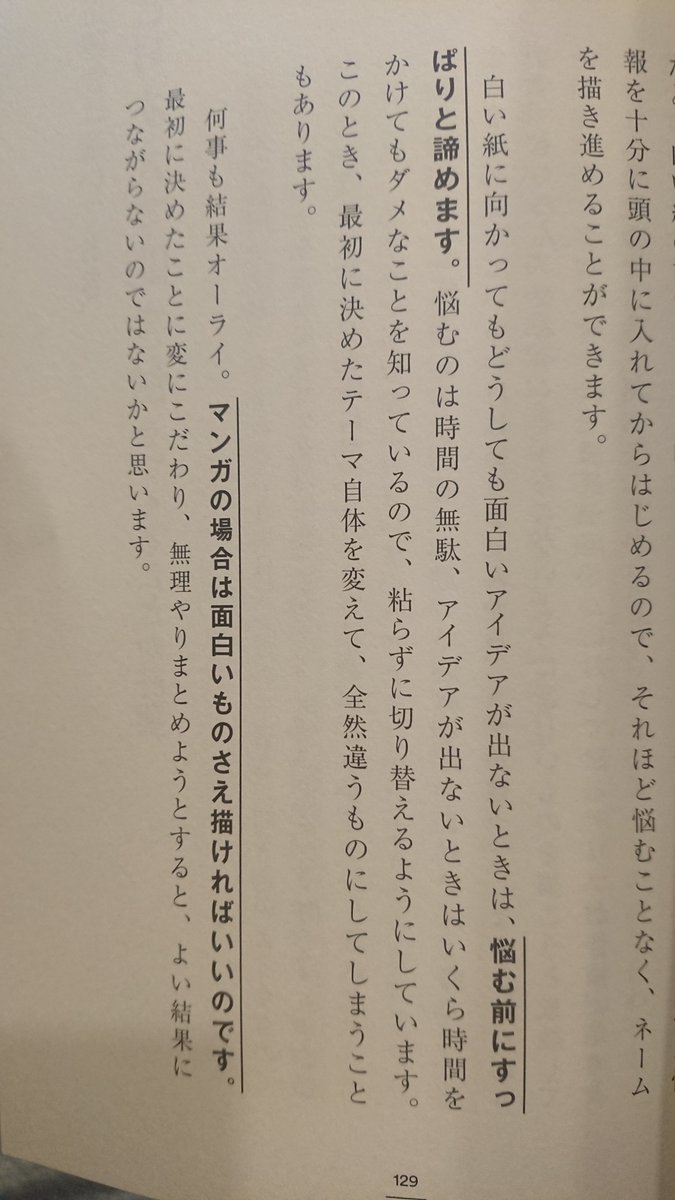 報を十分に頭の中に入れてからはじめるので、それほど悩むことなく、ネーム
を描き進めることができます。
白い紙に向かってもどうしても面白いアイデアが出ないときは、悩む前にすっ
ぱりと諦めます。悩むのは時間の無駄、アイデアが出ないときはいくら時間を
かけてもダメなことを知っているので、粘らずに切り替えるようにしています。
このとき、最初に決めたテーマ自体を変えて、全然違うものにしてしまうこと
もあります。
何事も結果オーライ。マンガの場合は面白いものさえ描ければいいのです。
最初に決めたことに変にこだわり、無理やりまとめようとすると、よい結果に
つながらないのではないかと思います。
129